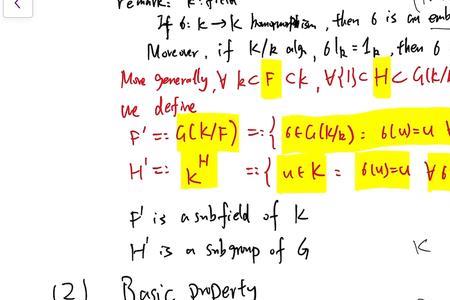 remark: K: field
If σ: K → K homomorphism, then σ is an emb
Moreover, if K/k alg, σ|k = 1k, then σ
More generally, ∀ k ⊂ F ⊂ K, ∀{1} ⊂ H < G(K/
we define
F' =: G(K/F) =: { σ∈G(K/k): σ(u)=u ∀
H' =: K^H =: { u ∈ K : σ(u)=u ∀σ
F' is a subfield of K
H' is a subgroup of G
K
(2) Basic property